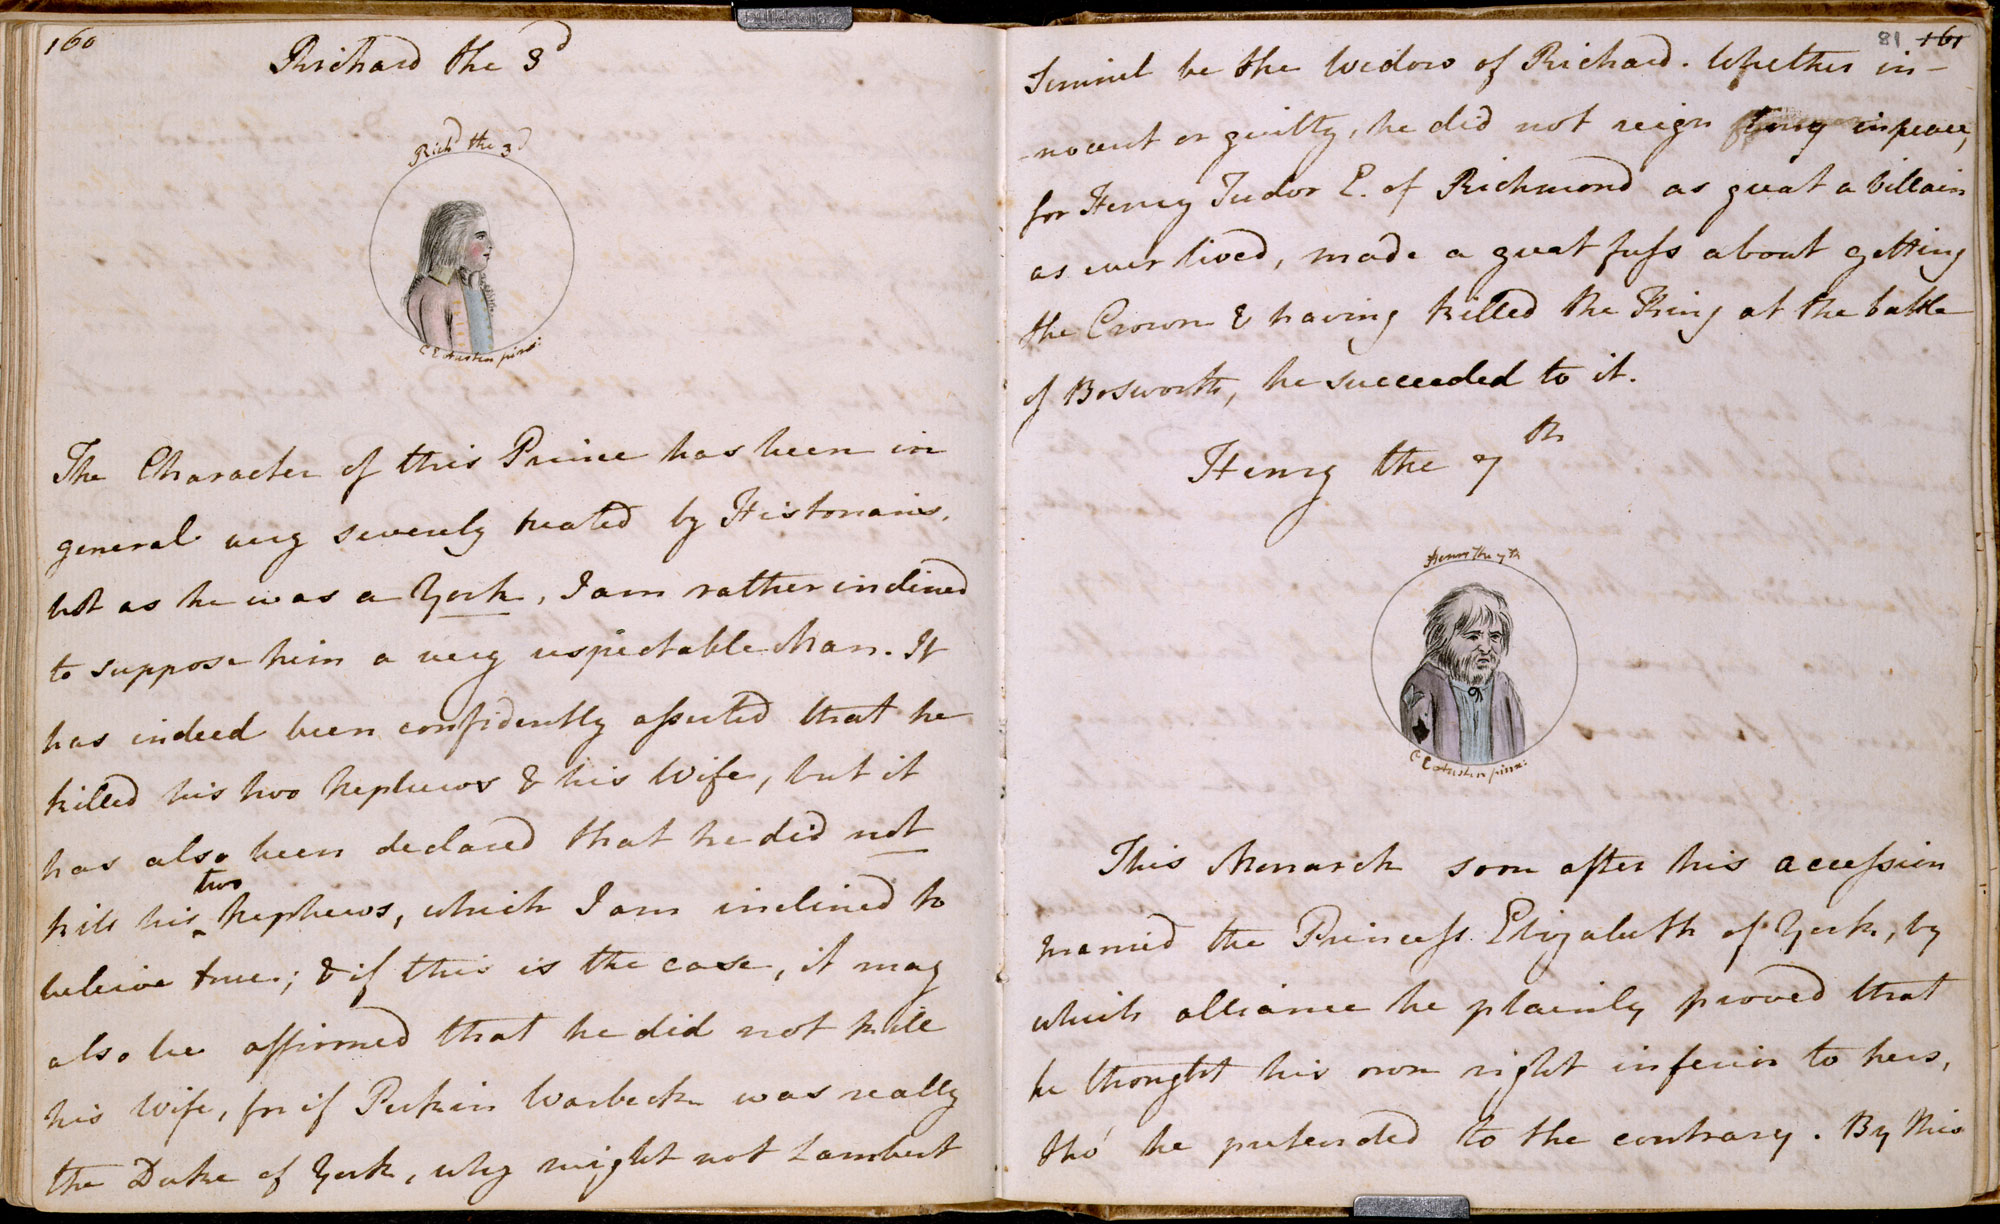 160
Richard the 3d
Richd the 3d
C E Austen pinx:
The Character of this Prince has been in
general very severely treated by Historians,
but as he was a York, I am rather inclined
to suppose him a very respectable Man. It
has indeed been confidently asserted that he
killed his two Nephews & his Wife, but it
has also been declared that he did not
kill his two Nephews, which I am inclined to
beleive true; & if this is the case, it may
also be affirmed that he did not kill
his Wife, for if Perkin Warbeck was really
the Duke of York, why might not Lambert
81 161
Simnel be the Widow of Richard. Whether in-
-nocent or guilty, he did not reign long in peace,
for Henry Tudor E. of Richmond as great a Villain
as ever lived, made a great fuss about getting
the Crown & having killed the King at the battle
of Bosworth, he succeeded to it.
Henry the 7th
Henry the 7th
C E Austen pinx:
This Monarch soon after his accession
married the Princess Elizabeth of York, by
which alliance he plainly proved that
he thought his own right inferior to hers,
tho' he pretended to the contrary. By this